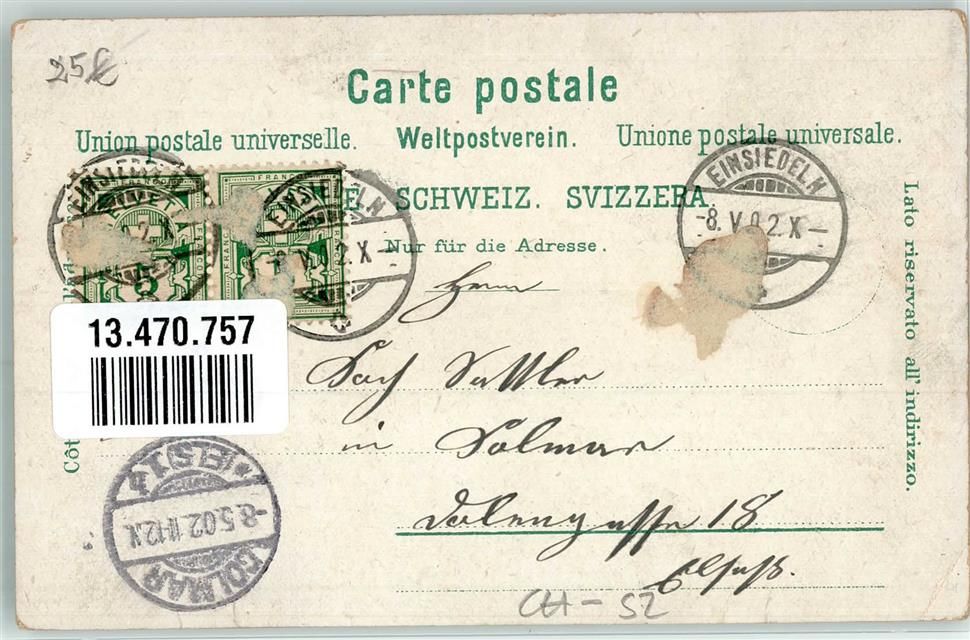 25
Carte postale
Union postale universelle. Weltpostverein. Unione postale universale.
SCHWEIZ. SVIZZERA.
Nur für die Adresse.
EINSIEDELN
-8.V.02.X-
EINSIEDELN
FRANCO
HELVETIA
5
EINSIEDELN
FRANCO
V.02.X-
13.470.757
Herrn
Sattler
in Colmar
18
Elsaß.
COLMAR
(ELS) 1 b
-8.5.02.11-12.N
Côt
Lato riservato all' indirizzo.
CH - SZ